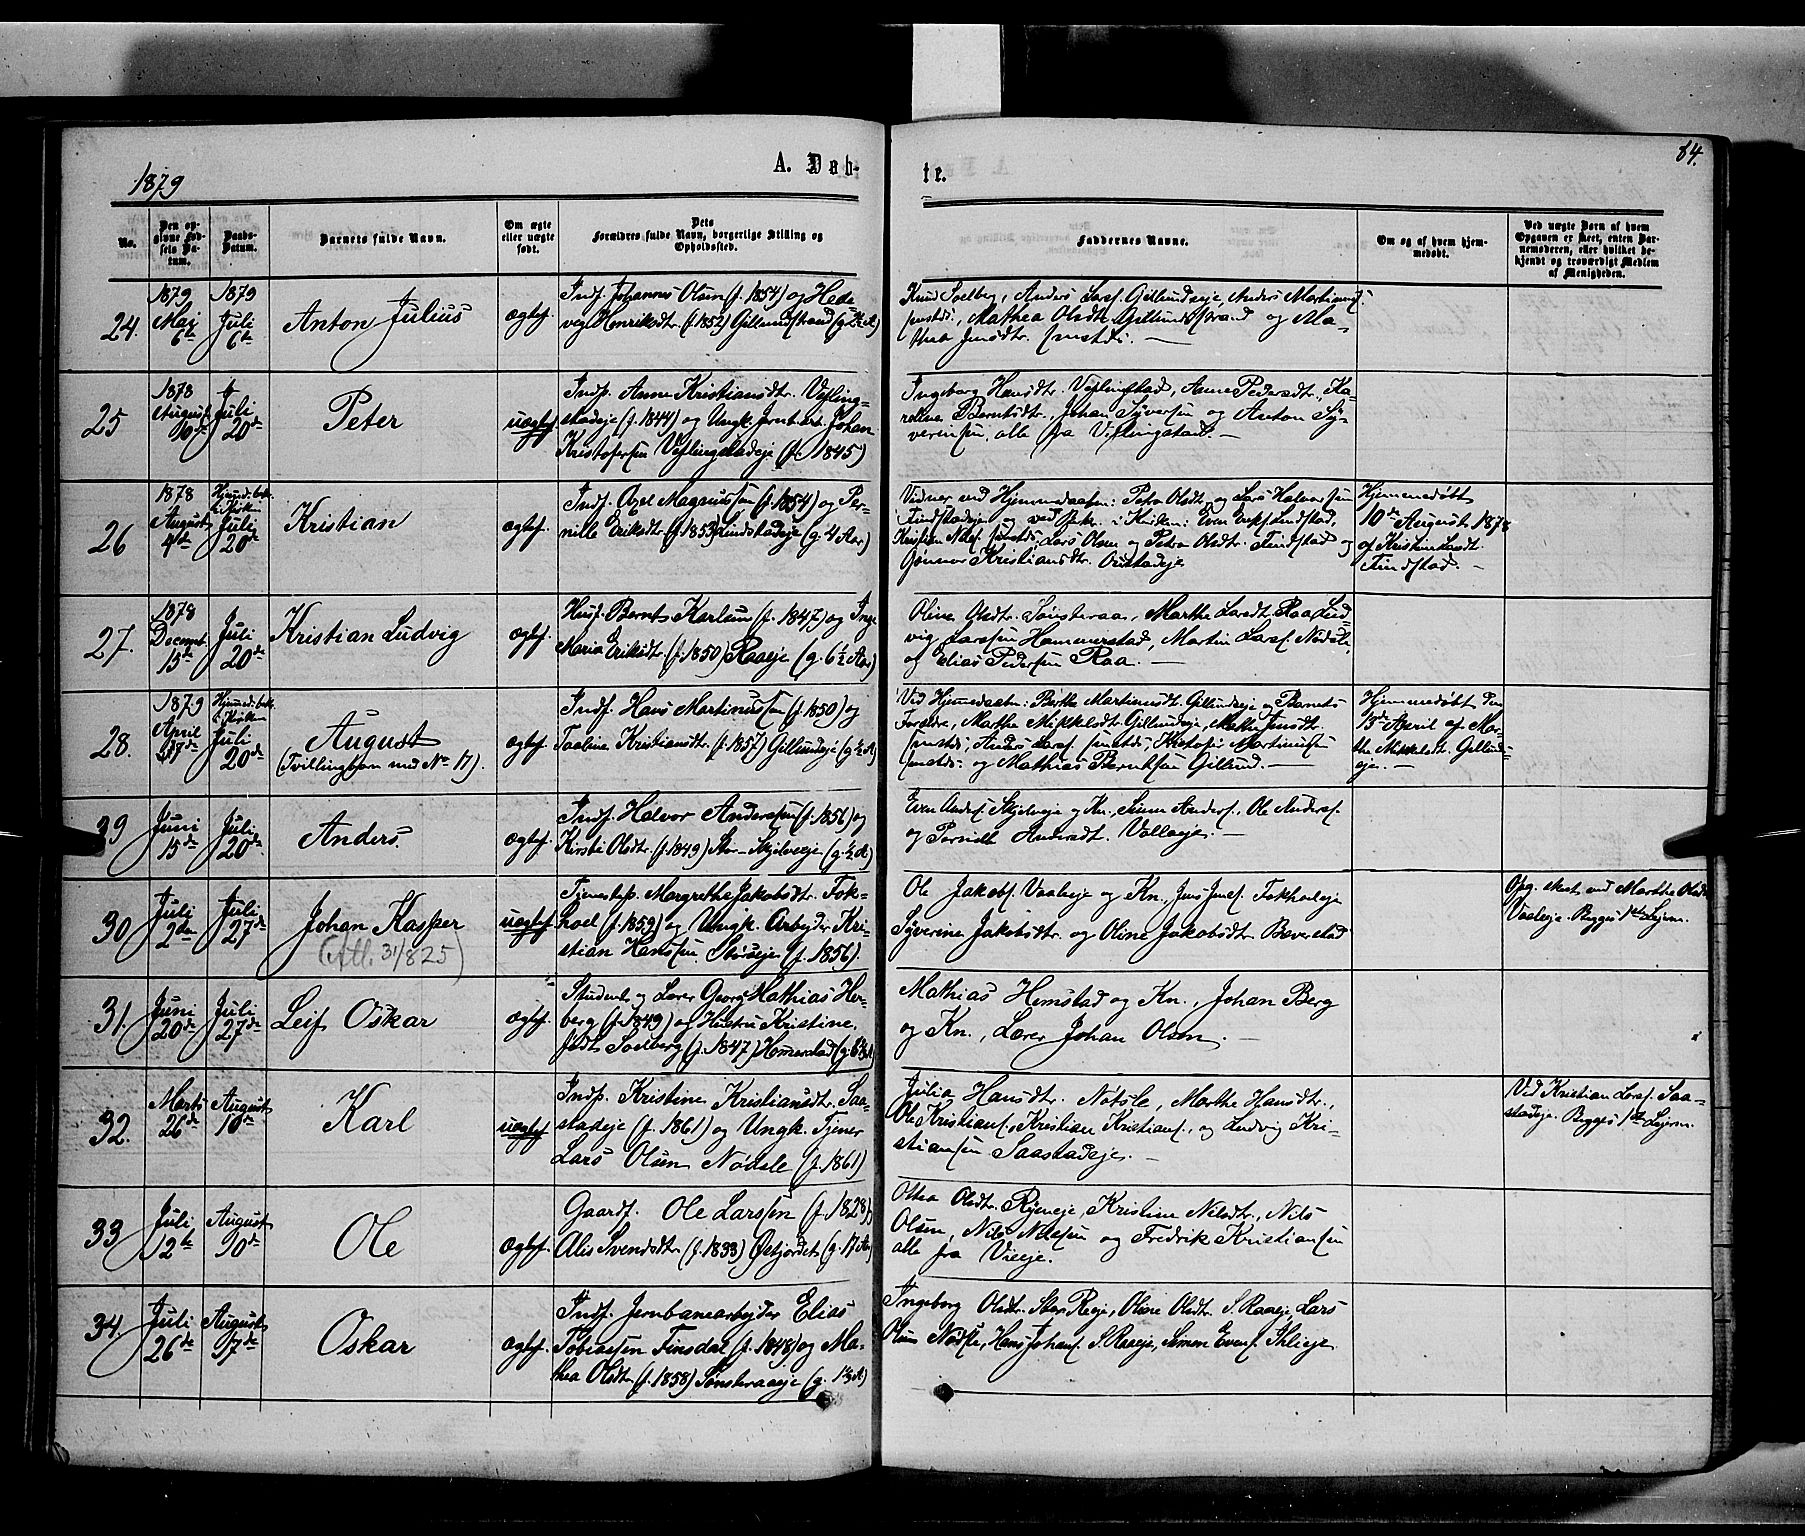 1879
A. Døb-
te.
84.
No.
Den op-
givne Fød-
sels Da-
tum.
Daabs-
Datum.
Barnets fulde Navn.
Om ægte
eller uægte
født.
Dets
Forældres fulde Navn, borgerlige Stilling og
Opholdssted.
Faddernes Navne.
Om og af hvem hjem-
medøbt.
Ved uægte Børn af hvem
Opgaven er skeet, enten Bar-
nemoderen, eller hvilket be-
kjendt og troværdigt Medlem
af Menigheden.
24.
1879
Maj
6te
1879
Juli
6te
Anton Julius
ægtef.
Indf. Johannes Olsen (f. 1854) og Hede-
veg Henriksdtr. (f. 1852) Gillundstrand
Knud Soelberg, Anders Larsf. Gillundseje, Anders Martinusf.
smstds, Mathea Olsdtr. Gillundstrand og Ma-
thea Jensdtr. smstds. —
25
1878
August
10de
Juli
20de
Peter
uægtef.
Indf. Anne Kristiansdtr. Vefling-
stadeje (f. 1844) og Ungk. Jernb.arb. Johan
Kristofersen Veflingstadeje (f. 1845)
Ingeborg Hansdtr. Veflingstad, Anne Pedersdtr., Ka-
reline Berntsdtr., Johan Syversen og Anton Sy-
versen, alle fra Veflingstad. —
26
1878
August
4de
Hjemd. bek.
i Kirken
Juli
20de
Kristian
ægtef.
Indf. Axel Magnussen (f. 1854) og Per-
nille Eriksdtr. (f. 1853) Findstadeje (g. 4 Aar)
Vidner ved Hjemmedaaben: Petra Olsdtr. og Lars Halvorsen
Findstadeje og ved Bekr. i Kirken: Even Evensf. Findstad,
smstds, Lars Olsen og Petra Olsdtr. Findstad og
Gunnor Kristiansdtr.
Hjemmedøbt
10de August 1878
af Kristine Larsdt.
Findstad. —
27.
1878
Decemb.
15de
Juli
20de
Kristian Ludvig
ægtef.
Husf. Bernt Karlsen (f. 1847) og Inge
Maria Eriksdtr. (f. 1850) Raaeje (g. 6½ Aar)
Oline Olsdtr. Sønsteraa, Marthe Larsdt. Raa, Lud-
vig Larssen Hammerstad, Martin Larsf. Nødsle,
og Elias Pedersen Raa. —
28.
1879
April
Hjemd. bek.
i Kirken
Juli
20de
August
(Tvillingbarn med No 17).
ægtef.
Indf. Hans Martinussen (f. 1850) og
Taaline Kristiansdtr. (f. 1857) Gillundseje (g. ½ A)
Ved Hjemmedaaben: Berthe Martinusdt. Gillundseje og Barnets
Forældre, Marthe Mikkelsdt. Gillundseje, Mathea Jensdt.
smstds, Anders Larsf. smstds, Kristofer Martinussen
smstds og Mathias Berntsen Gillund. —
Hjemmedøbt den
15de April af Mar-
the Mikkelsdt. Gillunds-
eje. —
29
Juni
15de
Juli
20de
Anders
ægtef.
Indf. Halvor Andersen (f. 1856) og
Kirsti Olsdtr. (f. 1849) Stor-Skjelveeje (g. ½ A)
Even Andersf. Skjelveeje og Kn., Simen Andersf., Ole Andersf.
og Pernille Andersdt. Volleeje. —
30
Juli
2den
Juli
27de
Johan Kasper
(Atl. 31/825)
uægtef.
Tjenestep. Margrethe Jakobsdtr. Fok-
hoel (f. 1859) og Ungk. Arbejder Kri-
stian Hanssen Størseje (f. 1856).
Ole Jakobsf. Vaaleeje og Kn., Jens Jensf. Fokholeje
Syverine Jakobsdtr. og Oline Jakobsdtr. Bæverstad
Opg. skeet ved Marthe Olsdt.
Vaaleeje. Begges 1ste Lejerm.
31.
Juni
20de
Juli
27de
Leif Oskar
ægtef.
Student og Lærer Georg Mathias Her-
berg (f. 1849) og Hustru Kristine
født Soelberg (f. 1847) Hommerstad
Mathias Hemstad og Kn., Johan Berg
og Kn., Lærer Johan Olsen. —
32.
Marts
26de
August
10de
Karl
uægtef.
Indp. Kristine Kristiansdtr. Saa-
stadeje (f. 1861) og Ungk. Tjener
Lars Olsen Nødsle (f. 1861)
Julia Hansdtr. Nøtsle, Marthe Hansdtr.,
Ole Kristiansf., Kristian Kristiansf., og Ludvig Kri-
stiansen Saastadeje. —
Ved Kristian Larsf. Saa-
stadeje. Begges 1ste Lejerm.
33
Juli
12te
August
10de
Ole
ægtef.
Gaardf. Ole Larssen (f. 1828)
Alis Svendsdtr. (f. 1833) Østjordet (g. 17 Aar)
Othea Olsdtr. Ryeneje, Kristine Nilsdtr., Nils
Olsen, Nils Nilssen og Fredrik Kristiansen
alle fra Vieeje.
34.
Juli
26de
August
17de
Oskar
ægtef.
Indf. Jernbanearbejder Elias
Tobiassen Finsdal (f. 1848) og Ma-
thea Olsdtr. (f. 1858) Sønsteraaeje
Ingeborg Olsdtr. Store Reeje, Oline Olsdtr. S. Raaeje, Lars
Olsen Nødsle, Hans Johansf. S. Raaeje, Simen Evensf.